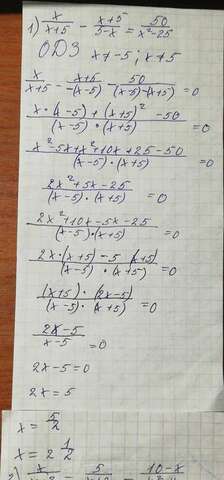 1) x/(x+5) - (x+5)/(5-x) = 50/(x²-25)
ОДЗ x≠-5; x≠5
x/(x+5) - (x+5)/(-(x-5)) - 50/((x-5)(x+5)) = 0
(x·(x-5)+(x+5)²-50)/((x-5)·(x+5)) = 0
(x²-5x+x²+10x+25-50)/((x-5)·(x+5)) = 0
(2x²+5x-25)/((x-5)·(x+5)) = 0
(2x²+10x-5x-25)/((x-5)·(x+5)) = 0
(2x·(x+5)-5(x+5))/((x-5)·(x+5)) = 0
((x+5)·(2x-5))/((x-5)·(x+5)) = 0
(2x-5)/(x-5) = 0
2x-5=0
2x=5
x = 5/2
x = 2 1/2